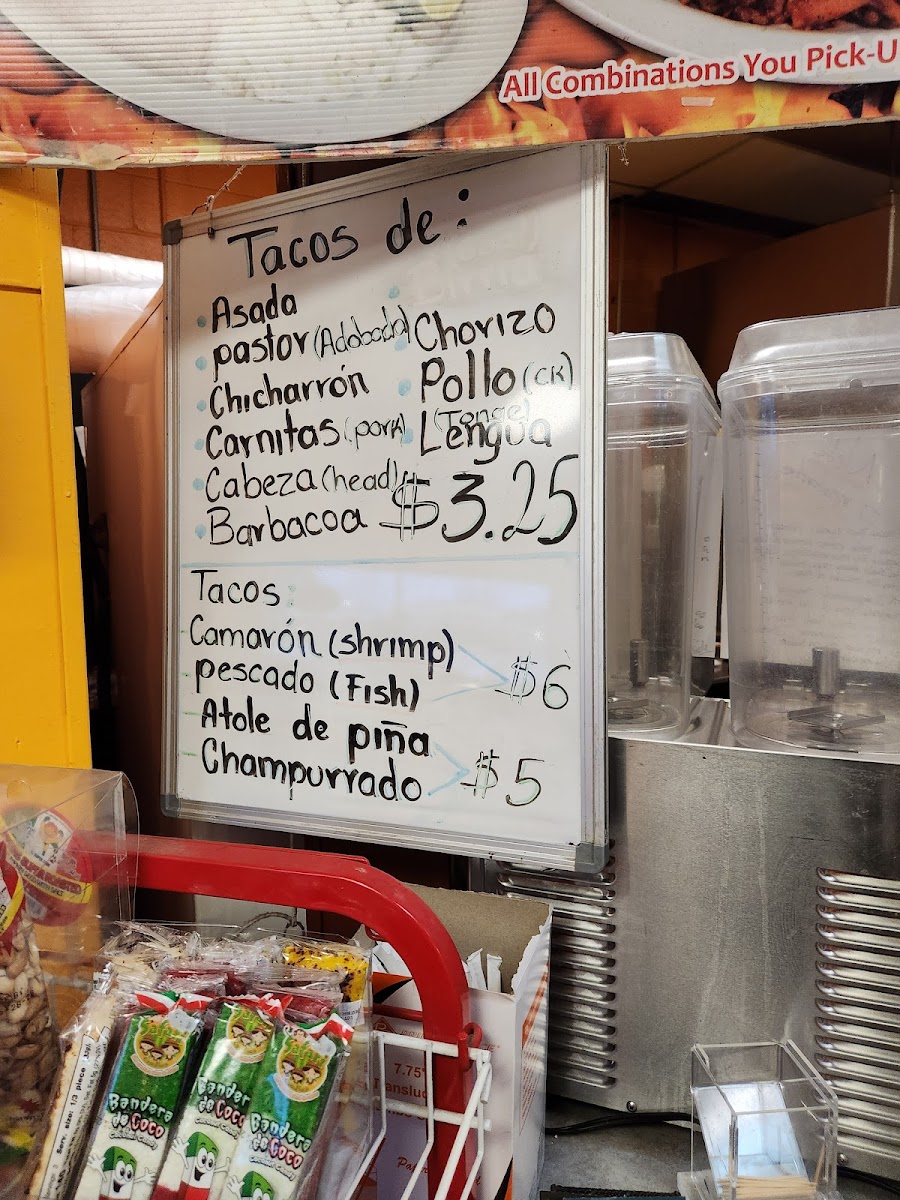 All Combinations You Pick-U
Tacos de:
Asada
pastor (Adobada)
Chicharrón
Carnitas (pork)
Cabeza (head)
Barbacoa
Chorizo
Pollo (CK)
(Tonge)
Lengua
$3.25
Tacos:
Camarón (shrimp)
pescado (Fish)
$6
Atole de piña
Champurrado
$5
Bandera
de Coco
Bandera
de Coco
Bandera
de Coco
7.75"